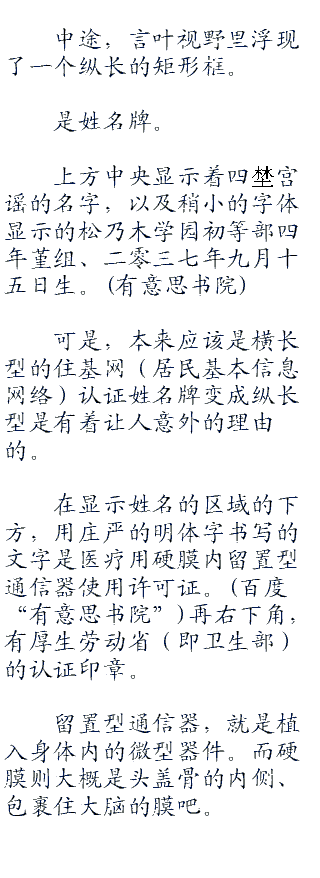 中途，言叶视野里浮现
了一个纵长的矩形框。
是姓名牌。
上方中央显示着四埜宫
谣的名字，以及稍小的字体
显示的松乃木学园初等部四
年堇组、二零三七年九月十
五日生。(有意思书院)
可是，本来应该是横长
型的住基网（居民基本信息
网络）认证姓名牌变成纵长
型是有着让人意外的理由
的。
在显示姓名的区域的下
方，用庄严的明体字书写的
文字是医疗用硬膜内留置型
通信器使用许可证。(百度
“有意思书院”)再右下角，
有厚生劳动省（即卫生部）
的认证印章。
留置型通信器，就是植
入身体内的微型器件。而硬
膜则大概是头盖骨的内侧、
包裹住大脑的膜吧。